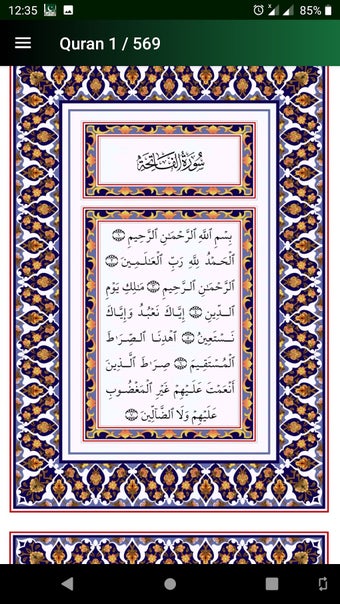 12:35
85%
Quran 1 / 569
سُورَةُ الفَاتِحَةِ
بِسْمِ اللَّهِ الرَّحْمَٰنِ الرَّحِيمِ
الْحَمْدُ لِلَّهِ رَبِّ الْعَالَمِينَ
الرَّحْمَٰنِ الرَّحِيمِ مَالِكِ يَوْمِ
الدِّينِ إِيَّاكَ نَعْبُدُ وَإِيَّاكَ
نَسْتَعِينُ اهْدِنَا الصِّرَاطَ
الْمُسْتَقِيمَ صِرَاطَ الَّذِينَ
أَنْعَمْتَ عَلَيْهِمْ غَيْرِ الْمَغْضُوبِ
عَلَيْهِمْ وَلَا الضَّالِّينَ